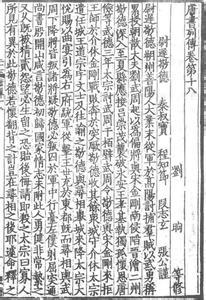 唐書列傳卷第十八
劉 昫 等修
尉遲敬德 秦叔寶 程知節 段志玄 張公謹
尉遲敬德朔州善陽人大業末從軍於高陽討捕羣賊以武勇稱
累授朝散大夫劉武周起以為偏將與宋金剛南侵陷晉澮二州
敬德深入至夏縣應接呂崇茂襲破永安王孝基執獨孤懷恩唐
儉等武德三年太宗討武周於柏壁武周令敬德與宋金剛來拒
王師於介休金剛戰敗奔於突厥敬德收其餘眾城守介休太宗
遣任城王道宗宇文士及往諭之敬德與尋相舉城來降太宗大
悅賜以曲宴引為右一府統軍從擊王世充於東都既而尋相與武
周下降將皆叛諸將疑敬德必叛囚於軍中行臺左僕射屈突通
尚書殷開山咸言敬德初歸國家情志未附此人勇健非常縶之
又久既被猜貳怨望必生留之恐貽後悔請即殺之太宗曰寡人
所見有異於此敬德若懷翻背之計豈在尋相之後耶遽命釋之